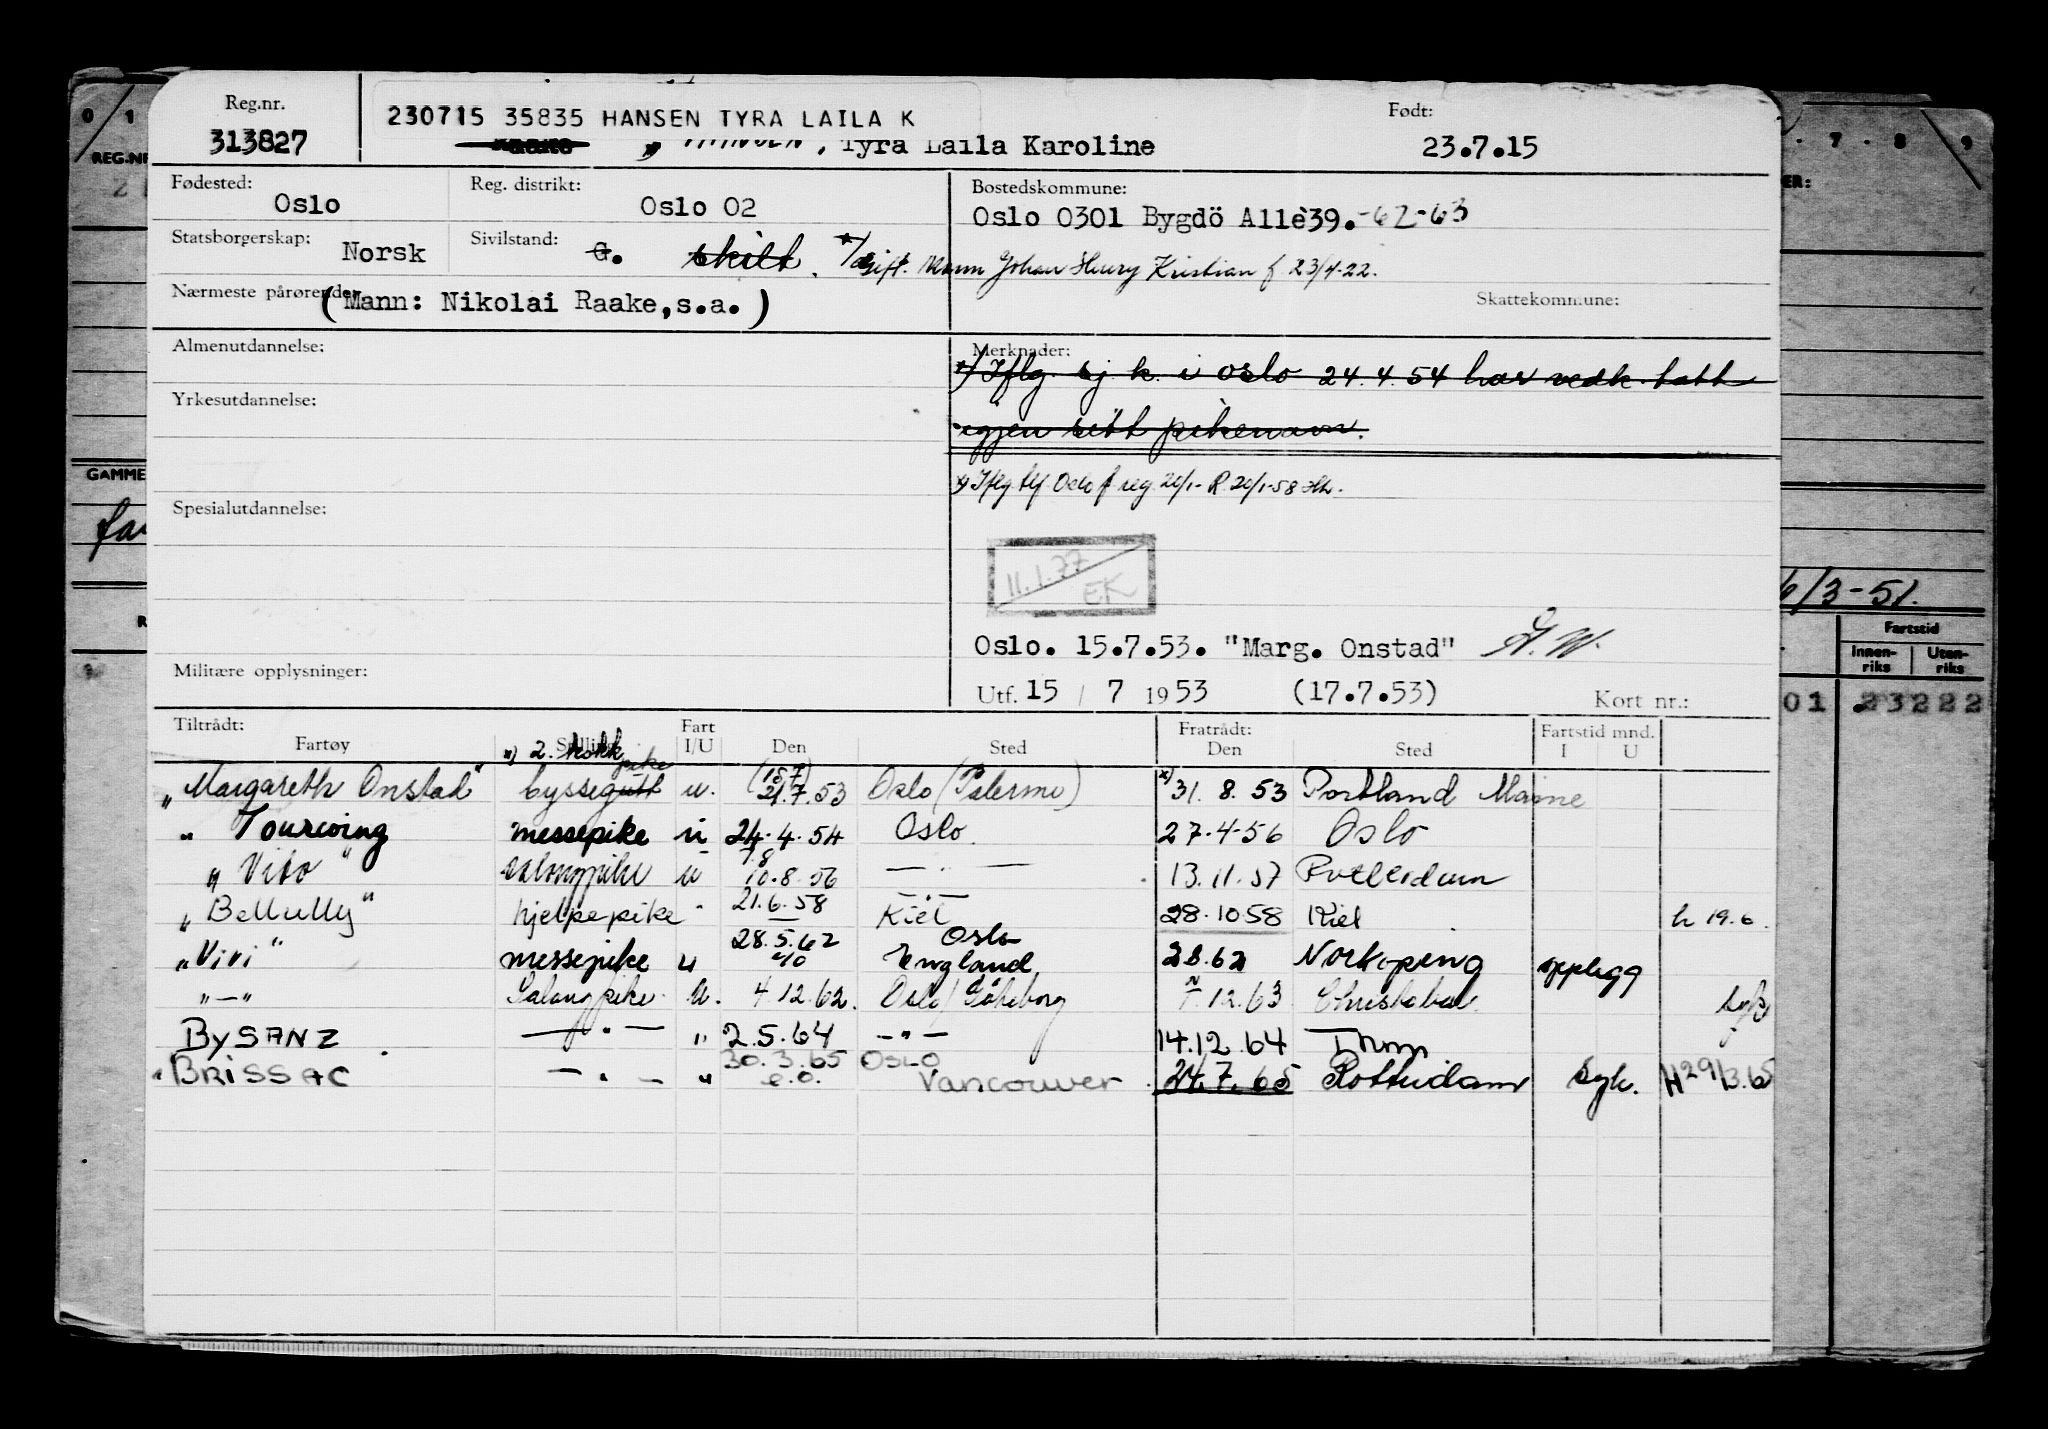 Reg.nr.
313827
230715 35835 HANSEN TYRA LAILA K
HANSEN, Tyra Laila Karoline
Født:
23.7.15
Fødested:
Oslo
Reg. distrikt:
Oslo 02
Bostedskommune:
Oslo 0301 Bygdö Allè39.-62-63
Statsborgerskap:
Norsk
Sivilstand:
G. skilt. x/ Gift. Mann Johan Henry Kristian f. 23/4-22.
Nærmeste pårørende
(Mann: Nikolai Raake,s.a.)
Skattekommune:
Almenutdannelse:
Yrkesutdannelse:
Spesialutdannelse:
Militære opplysninger:
Merknader:
x) Iflg. sj. k. i Oslo 24.4.54 har vedk. tatt
igjen sitt pikenavn.
x) Iflg. tlf Oslo f reg. 20/1- R. 20/1-58
11.1.77
EK
Oslo. 15.7.53. "Marg. Onstad" A.W.
Utf. 15 / 7 1953 (17.7.53) Kort nr.:
Tiltrådt:
Fartøy
Stilling
Fart
I/U
Den
Sted
Fratrådt:
Den
Sted
Fartstid mnd.
I U
x) 2. kokk
"Margareth Onstad" byssegutt pike u. (15.7) 21.7.53 Oslo (Palermo) x) 31.8.53 Portland Maine
" Tourcoing messepike u 24.4.54 Oslo. 27.4.56 Oslo
" Vito " salongpike u 7.8 10.8.56 — " — 13.11.57 Rotterdam
"Bellully" hjelpepike " 21.6.58 Kiel 28.10.58 Kiel h 19.6.
"Vivi" messepike u 28.5.62 4/0 Oslo England 28.62 Norkøping opplegg
" — " Salongpike. U. 4.12.62. Oslo/Göteborg 7.12.63 Christobal syk
BYSANZ — " — " 2.5.64 — " — 14.12.64
BRISSAC — " — " 30.3.65 e.o. OSLO Vancouver 24.7.65 Rotterdam syk. H 29/3.65
0 1
REG.NR
GAMME
7 8 9
ER:
6/3-51.
Fartstid
Innen-
riks
Uten-
riks
01 23222